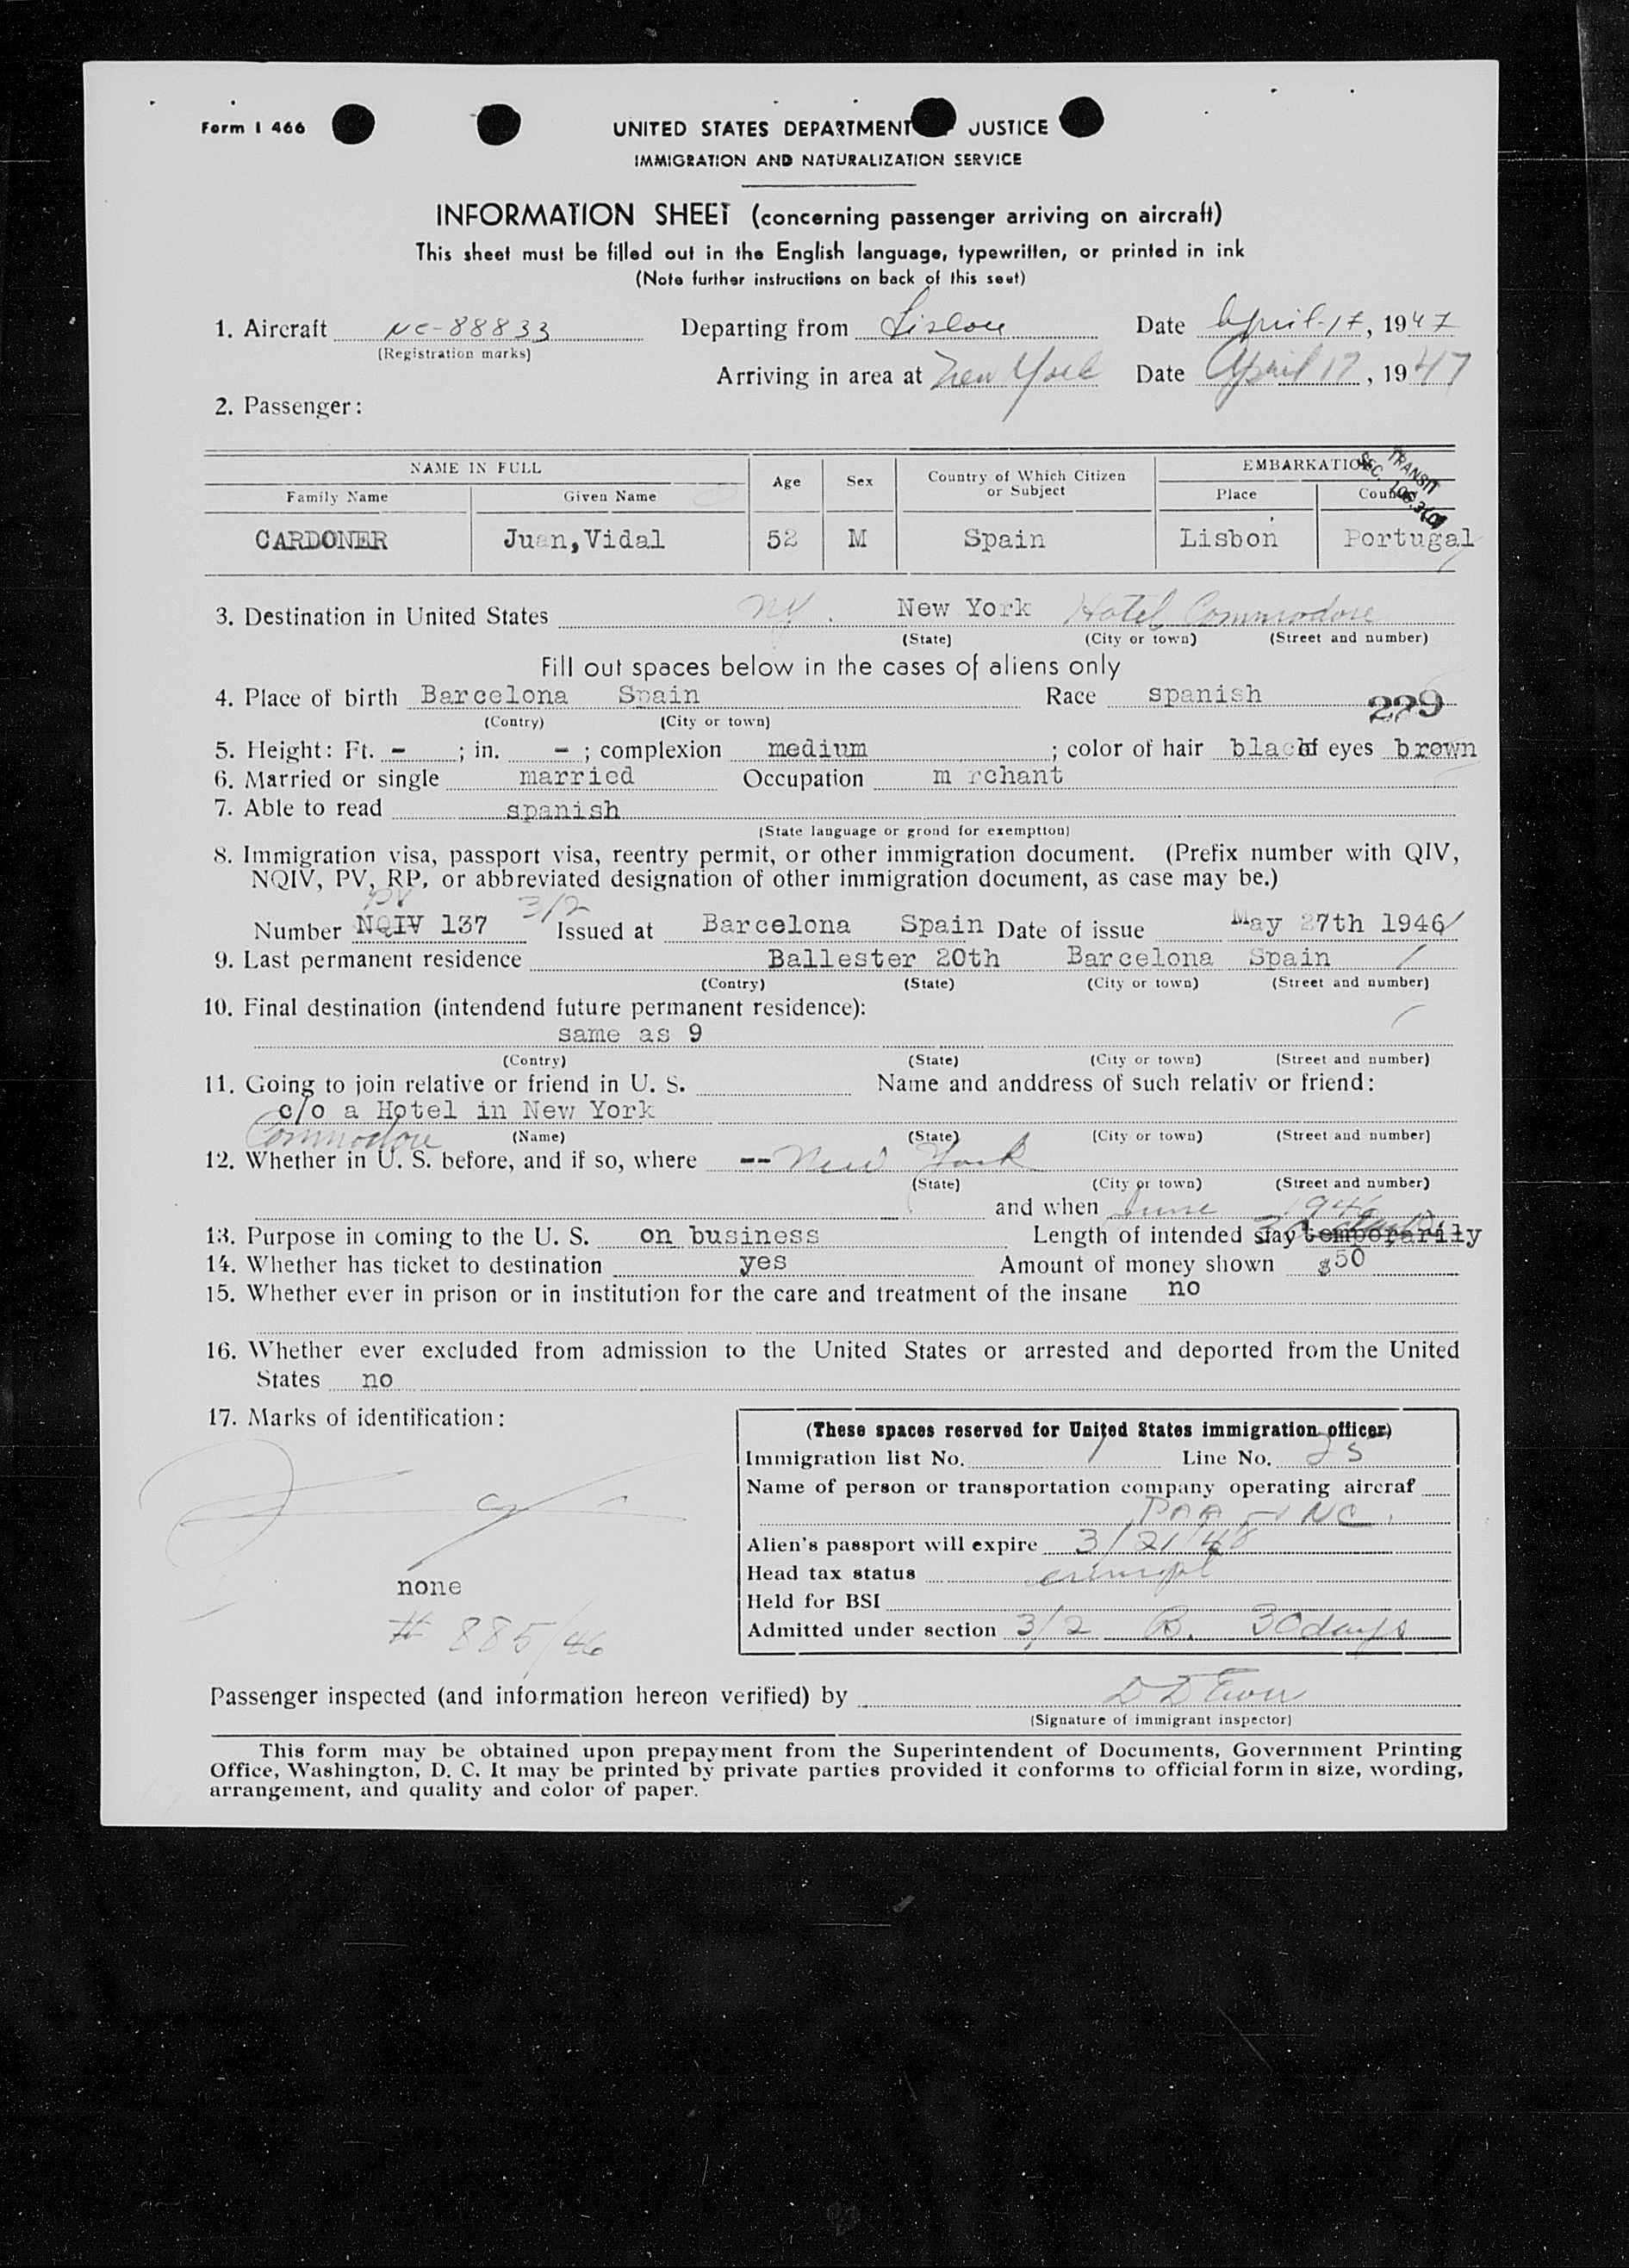 Form I 466
UNITED STATES DEPARTMENT JUSTICE
IMMIGRATION AND NATURALIZATION SERVICE
INFORMATION SHEET (concerning passenger arriving on aircraft)
This sheet must be filled out in the English language, typewritten, or printed in ink
(Note further instructions on back of this seet)
1. Aircraft NC-88833 Departing from Lisbon Date April-17, 1947
(Registration marks)
Arriving in area at New York Date April 17, 1947
2. Passenger:
NAME IN FULL Age Sex Country of Which Citizen or Subject EMBARKATION
TRANSIT
SEC.
Family Name Given Name Place
CARDONER Juan, Vidal 52 M Spain Lisbon Portugal
3. Destination in United States NY. New York Hotel Commodore
(State) (City or town) (Street and number)
Fill out spaces below in the cases of aliens only
4. Place of birth Barcelona Spain Race spanish 229
(Contry) (City or town)
5. Height: Ft. - ; in. - ; complexion medium ; color of hair black of eyes brown
6. Married or single married Occupation m rchant
7. Able to read spanish
(State language or grond for exemptton)
8. Immigration visa, passport visa, reentry permit, or other immigration document. (Prefix number with QIV,
NQIV, PV, RP, or abbreviated designation of other immigration document, as case may be.)
PV 3/2
Number NQIV 137 Issued at Barcelona Spain Date of issue May 27th 1946
9. Last permanent residence Ballester 20th Barcelona Spain
(Contry) (State) (City or town) (Street and number)
10. Final destination (intendend future permanent residence):
same as 9
(Contry) (State) (City or town) (Street and number)
11. Going to join relative or friend in U. S. Name and anddress of such relativ or friend:
c/o a Hotel in New York
Commodore (Name) (State) (City or town) (Street and number)
12. Whether in U. S. before, and if so, where -- New York
(State) (City or town) (Street and number)
and when June 1946
13. Purpose in coming to the U. S. on business Length of intended stay temporarily
14. Whether has ticket to destination yes Amount of money shown $50
15. Whether ever in prison or in institution for the care and treatment of the insane no
16. Whether ever excluded from admission to the United States or arrested and deported from the United
States no
17. Marks of identification:
none
# 885/46
(These spaces reserved for United States immigration officer)
Immigration list No. 1 Line No. 25
Name of person or transportation company operating aircraf
PAA NC.
Alien's passport will expire 3/21/48
Head tax status exempt
Held for BSI
Admitted under section 3/2 B. 30 days
Passenger inspected (and information hereon verified) by
(Signature of immigrant inspector)
This form may be obtained upon prepayment from the Superintendent of Documents, Government Printing
Office, Washington, D. C. It may be printed by private parties provided it conforms to official form in size, wording,
arrangement, and quality and color of paper.